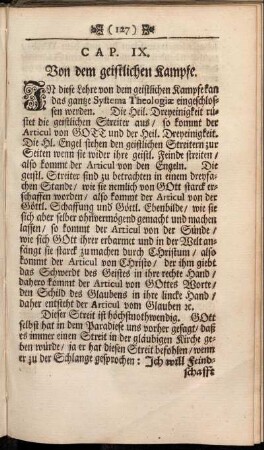 ( 127 )
CAP. IX.
Von dem geistlichen Kampfe.
IN diese Lehre von dem geistlichen Kampfe kan
das gantze Systema Theologiæ eingeschlos-
sen werden. Die Heil. Dreyeinigkeit rü-
stet die geistlichen Streiter aus / so kommt der
Articul von GOTT und der Heil. Dreyeinigkeit.
Die Hl. Engel stehen den geistlichen Streitern zur
Seiten wenn sie wider ihre geistl. Feinde streiten /
also kommt der Articul von den Engeln. Die
geistl. Streiter sind zu betrachten in einem dreyfa-
chen Stande / wie sie nemlich von GOtt starck er-
schaffen worden / also kommt der Articul von der
Göttl. Schaffung und Göttl. Ebenbilde / wie sie
sich aber selber ohnvermögend gemacht und machen
lassen / so kommt der Articul von der Sünde /
wie sich GOtt ihrer erbarmet und in der Welt an-
fängt sie starck zu machen durch Christum / also
kommt der Articul von Christo / der ihm giebt
das Schwerdt des Geistes in ihre rechte Hand /
dahero kommt der Articul von GOttes Worte /
den Schild des Glaubens in ihre lincke Hand /
daher entsteht der Articul vom Glauben ꝛc.
Dieser Streit ist höchstnothwendig. GOtt
selbst hat in dem Paradiese uns vorher gesagt / daß
es immer einen Streit in der gläubigen Kirche ge-
ben würde / ja er hat diesen Streit befohlen / wenn
er zu der Schlange gesprochen: Ich will Feind-
schafft